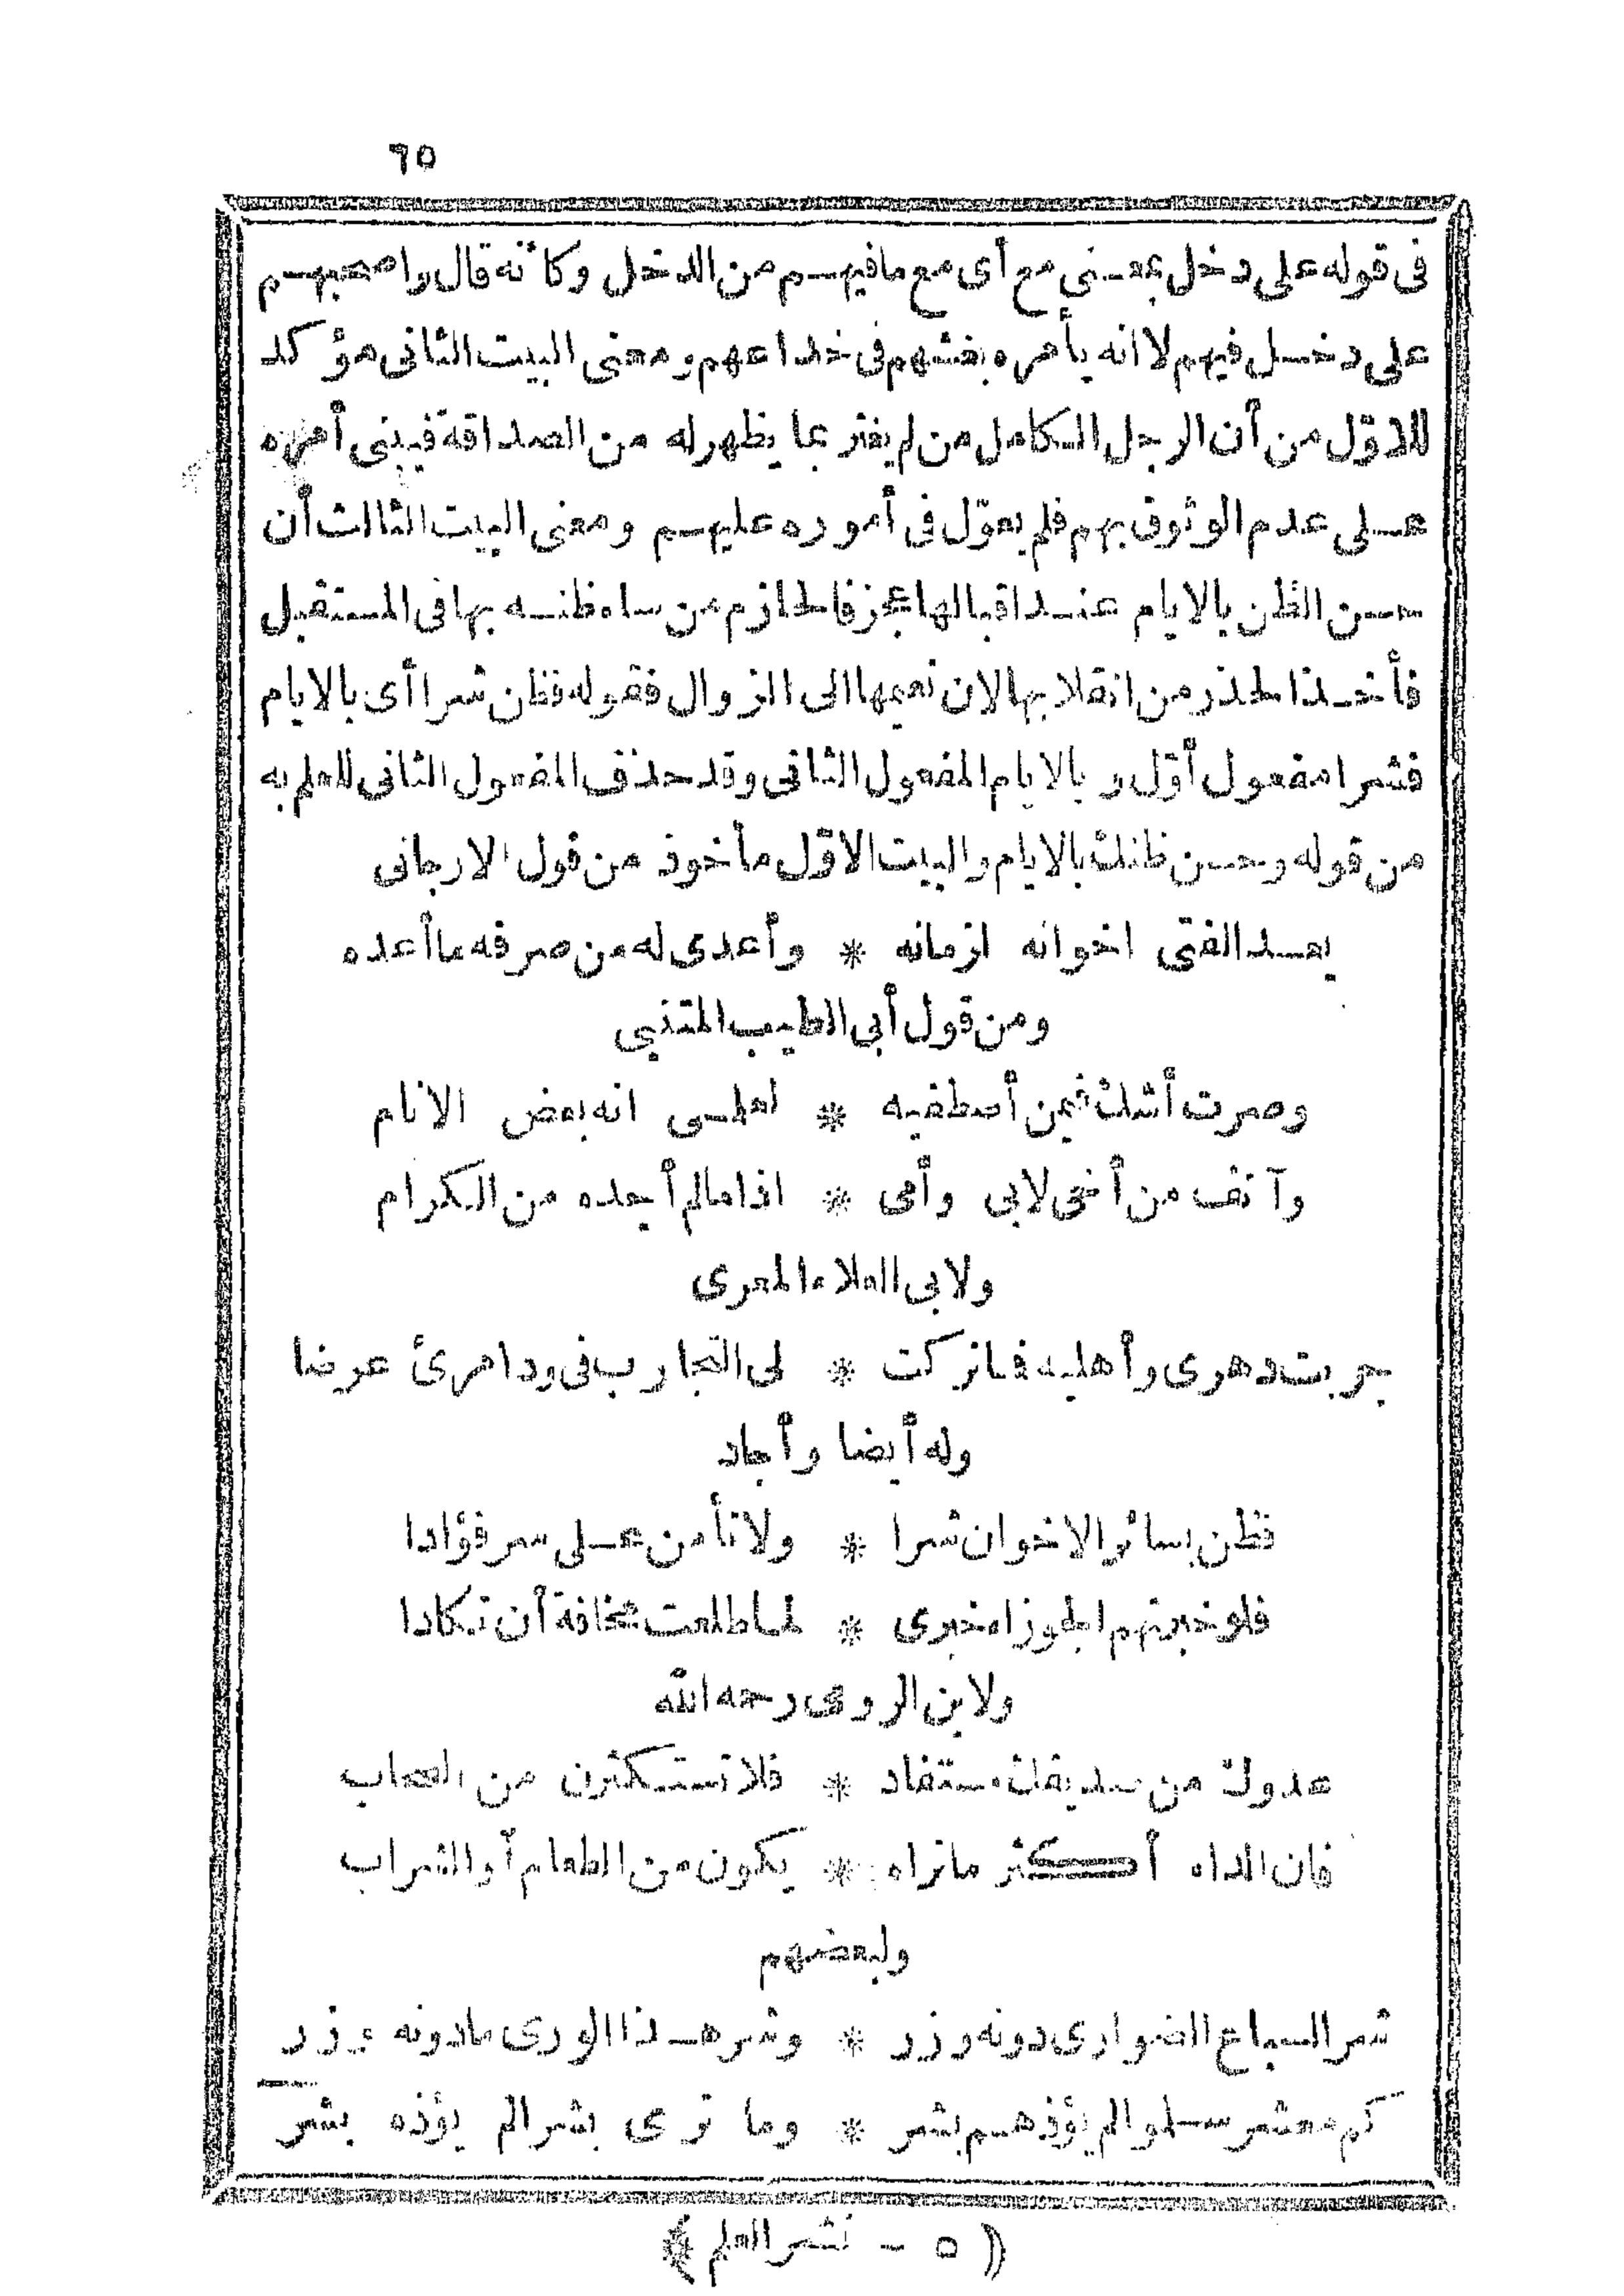 ٦٥
فى قوله على دخل بمعنى مع أى مع مافيهم من الدخل وكأنه قال واصحبهم
على دخل فيهم لا انه يأمره بغشهم فى خداعهم ومعنى البيت الثانى مؤكد
للاوّل من أن الرجل الكامل من لم يغتر بما يظهر له من الصداقة فيبنى أمره
على عدم الوثوق بهم فلم يعوّل فى أموره عليهم ومعنى البيت الثالث أن
حسن الظن بالايام عند اقبالها عجز فالحازم من ساء ظنه بها فى المستقبل
فأخذ الحذر من انقلابها لان نعيمها الى الزوال فقوله فظن شرا أى بالايام
فشرا مفعول أوّل وبالايام المفعول الثانى وقد حذف المفعول الثانى للعلم به
من قوله وحسن ظنك بالايام والبيت الاوّل مأخوذ من قول الارجانى
يعد الفتى اخوانه لزمانه * وأعدى له من صرفه ما أعده
ومن قول أبى الطيب المتنبى
وصرت أشك فيمن أصطفيه * لعلمى انه بعض الانام
وآنف من أخى لابى وأمى * اذا مالم أجده من الكرام
ولابى العلاء المعرى
جربت دهرى وأهليه فما تركت * لى التجارب فى ود امرئ غرضا
وله أيضا وأجاد
فظن بسائر الاخوان شرا * ولا تأمن على سر فؤادا
فلو خبرتهم الجوزاء خبرى * لما طلعت مخافة أن تكادا
ولابن الرومى رحمه الله
عدوك من صديقك مستفاد * فلا تستكثرن من الصحاب
فان الداء أكثر ماتراه * يكون من الطعام أو الشراب
ولبعضهم
شر السباع الضوارى دونه وزر * وشر هذا الورى مادونه وزر
كم معشر سلموا لم يؤذهم بشر * وما ترى بشرا لم يؤذه بشر
﴿ ٥ - نشر العلم ﴾